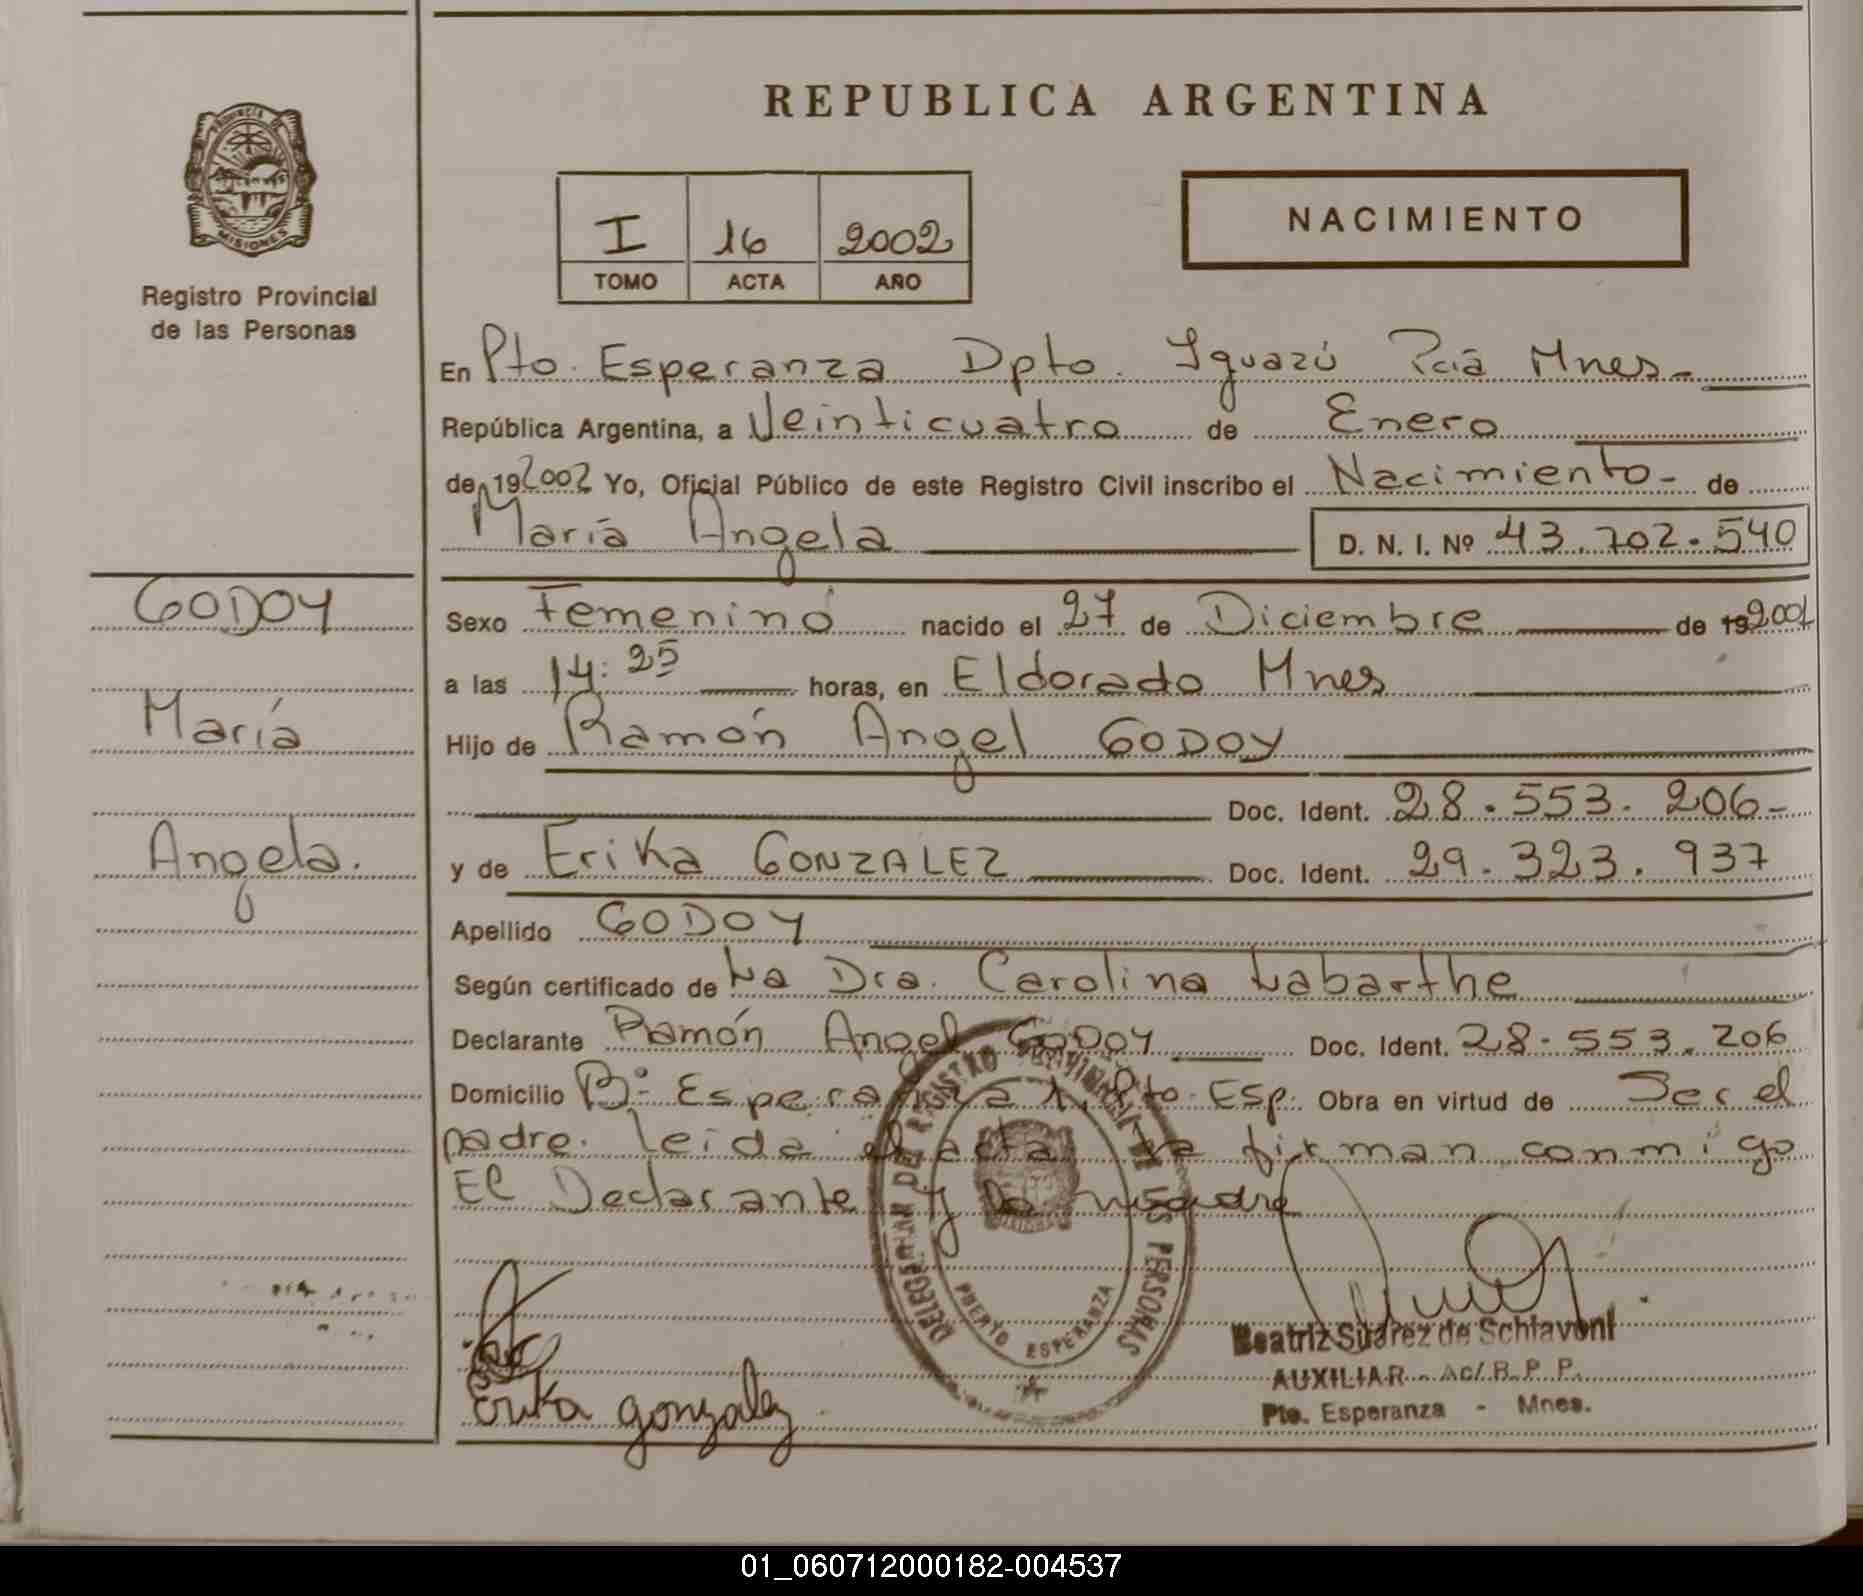 REPUBLICA ARGENTINA
PROVINCIA DE
MISIONES
Registro Provincial
de las Personas
I 16 2002
TOMO ACTA AÑO
NACIMIENTO
En Pto. Esperanza Dpto. Iguazú Pcia Mnes.-
República Argentina, a Veinticuatro de Enero
de 192002 Yo, Oficial Público de este Registro Civil inscribo el Nacimiento- de
María Angela D. N. I. Nº 43.702.540
GODOY
María
Angela.
Sexo Femenino nacido el 27 de Diciembre de 192001
a las 14:25 horas, en Eldorado Mnes
Hijo de Ramón Angel GODOY
Doc. Ident. 28.553.206-
y de Erika GONZALEZ Doc. Ident. 29.323.937
Apellido GODOY
Según certificado de La Dra. Carolina Labarthe
Declarante Ramón Angel GODOY Doc. Ident. 28.553.206
Domicilio Bº Esperanza 1, Pto. Esp. Obra en virtud de Ser el
padre. leida el acta la firman conmigo
El Declarante y la madre
DEL REGISTRO PROVINCIAL DE LAS PERSONAS
PUERTO ESPERANZA
Erika gonzalez
Beatriz Suarez de Schiavoni
AUXILIAR - Ac/ R. P. P.
Pto. Esperanza - Mnes.
01_060712000182-004537